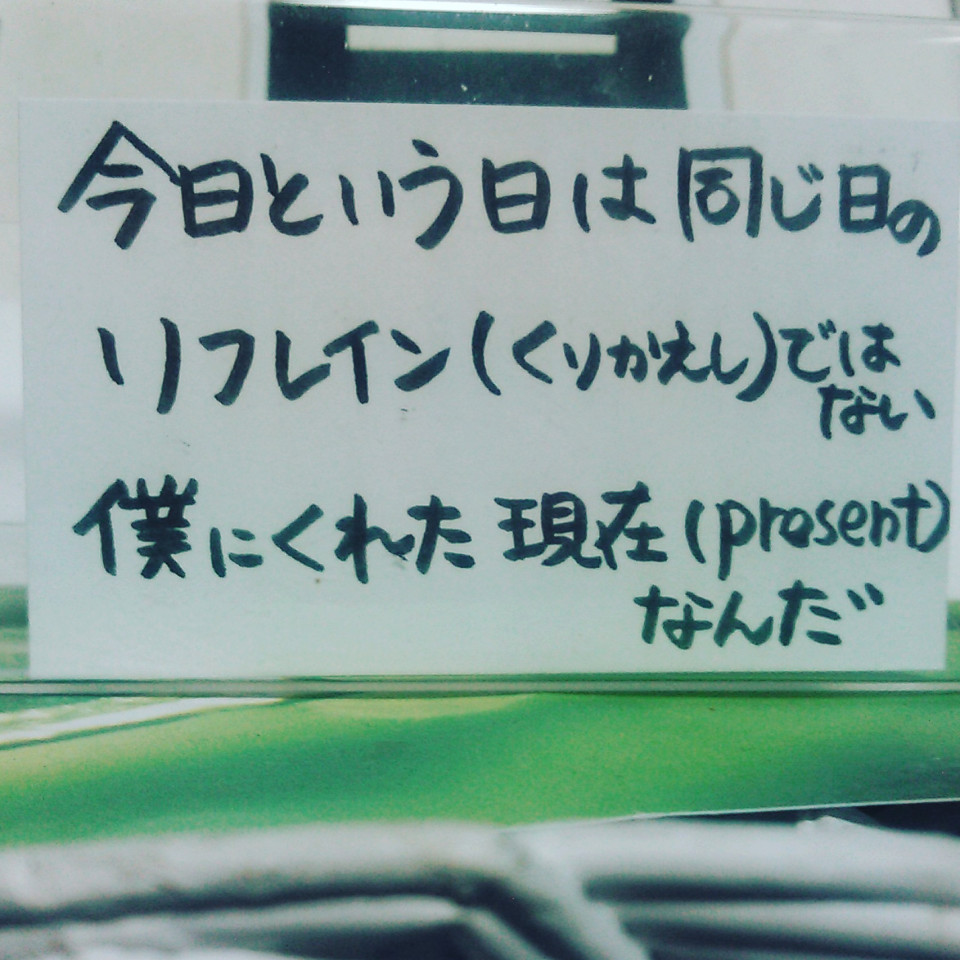 今日という日は同じ日の
リフレイン(くりかえし)では
ない
僕にくれた現在(present)
なんだ